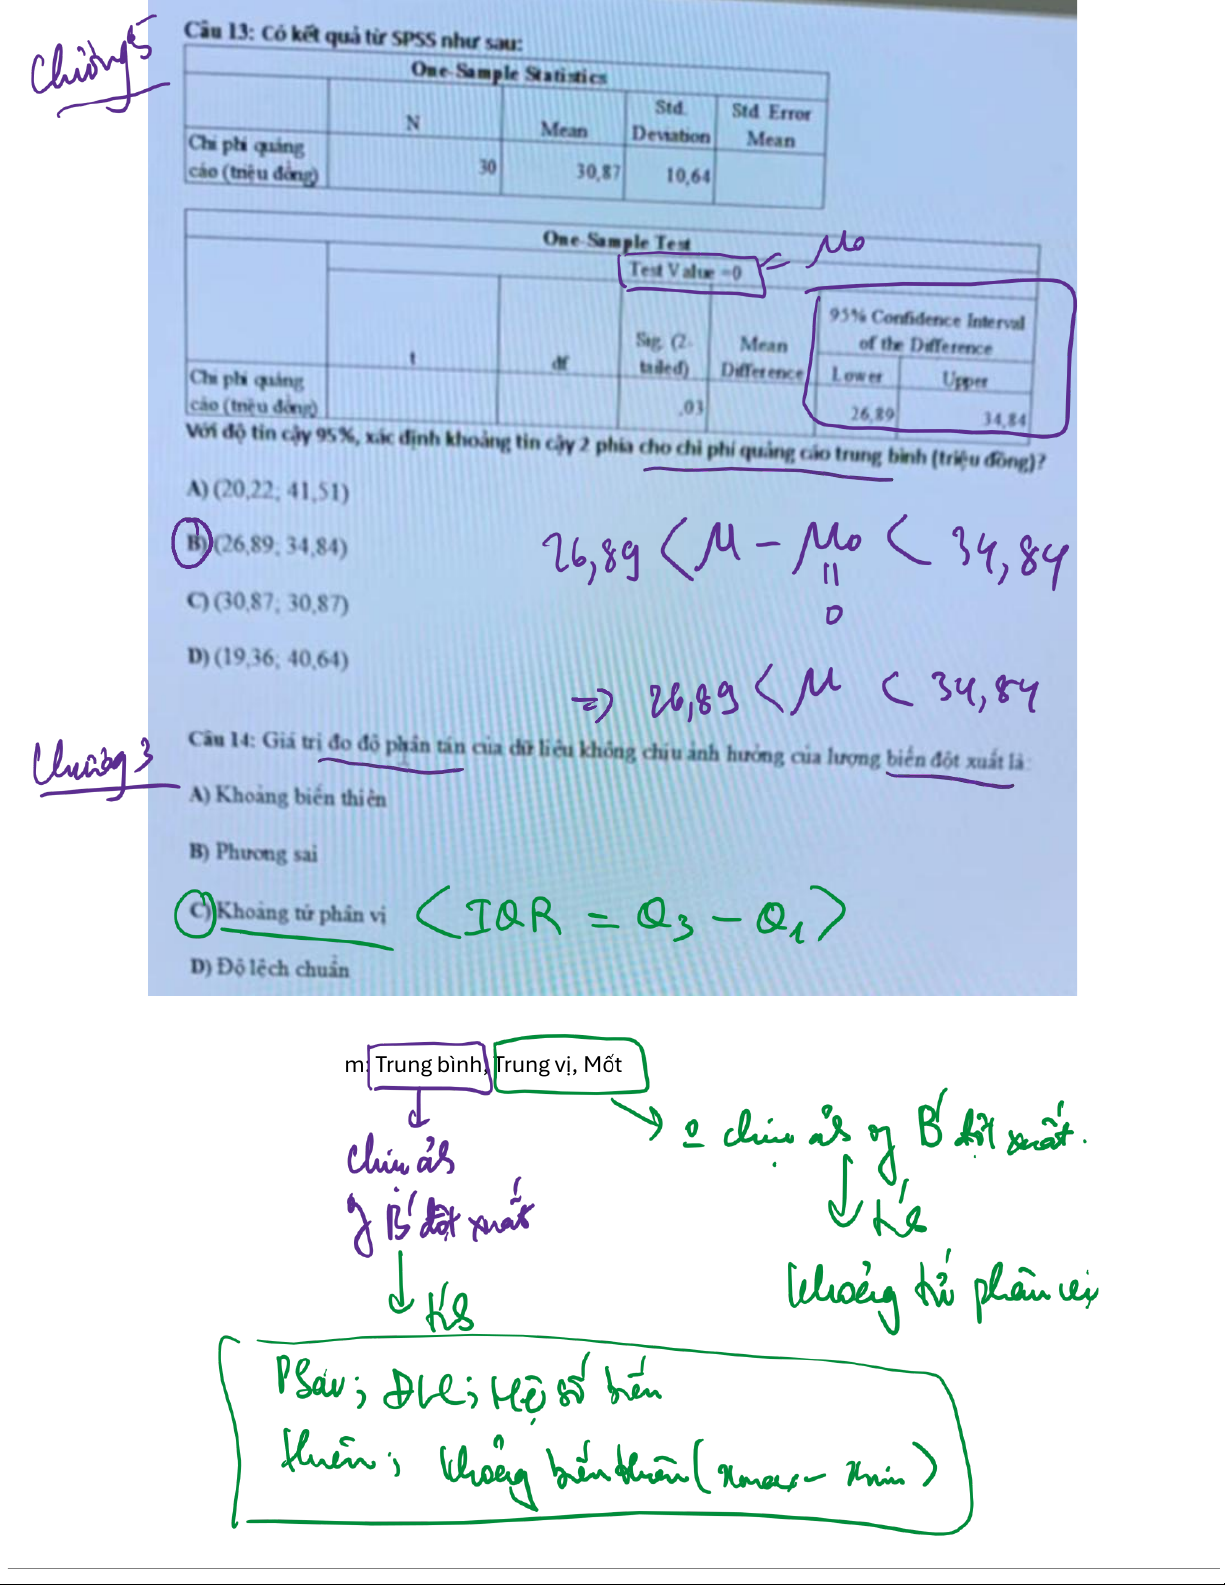 Chương 5
Câu 13: Có kết quả từ SPSS như sau:
One-Sample Statistics
N Mean Std. Deviation Std. Error Mean
Chi phí quảng cáo (triệu đồng) 30 30,87 10,64
One-Sample Test
Test Value =0 = μ0
t df Sig. (2-tailed) Mean Difference 95% Confidence Interval of the Difference
Lower Upper
Chi phí quảng cáo (triệu đồng) ,03 26,89 34,84
Với độ tin cậy 95%, xác định khoảng tin cậy 2 phía cho chi phí quảng cáo trung bình (triệu đồng)?
A) (20,22; 41,51)
B) (26,89; 34,84)
26,89 < μ - μ0 < 34,84
=
0
C) (30,87; 30,87)
D) (19,36; 40,64)
=> 26,89 < μ < 34,84
Chương 3
Câu 14: Giá trị đo độ phân tán của dữ liệu không chịu ảnh hưởng của lượng biến đột xuất là:
A) Khoảng biến thiên
B) Phương sai
C) Khoảng tứ phân vị <IQR = Q3 - Q1>
D) Độ lệch chuẩn
m: Trung bình, Trung vị, Mốt
chịu ảh
B đột xuất
chịu ảh B đột xuất.
Khoảng tứ phân vị
PSai; ĐLC; Hệ số biến
thiên; khoảng biến thiên (xmax - xmin)